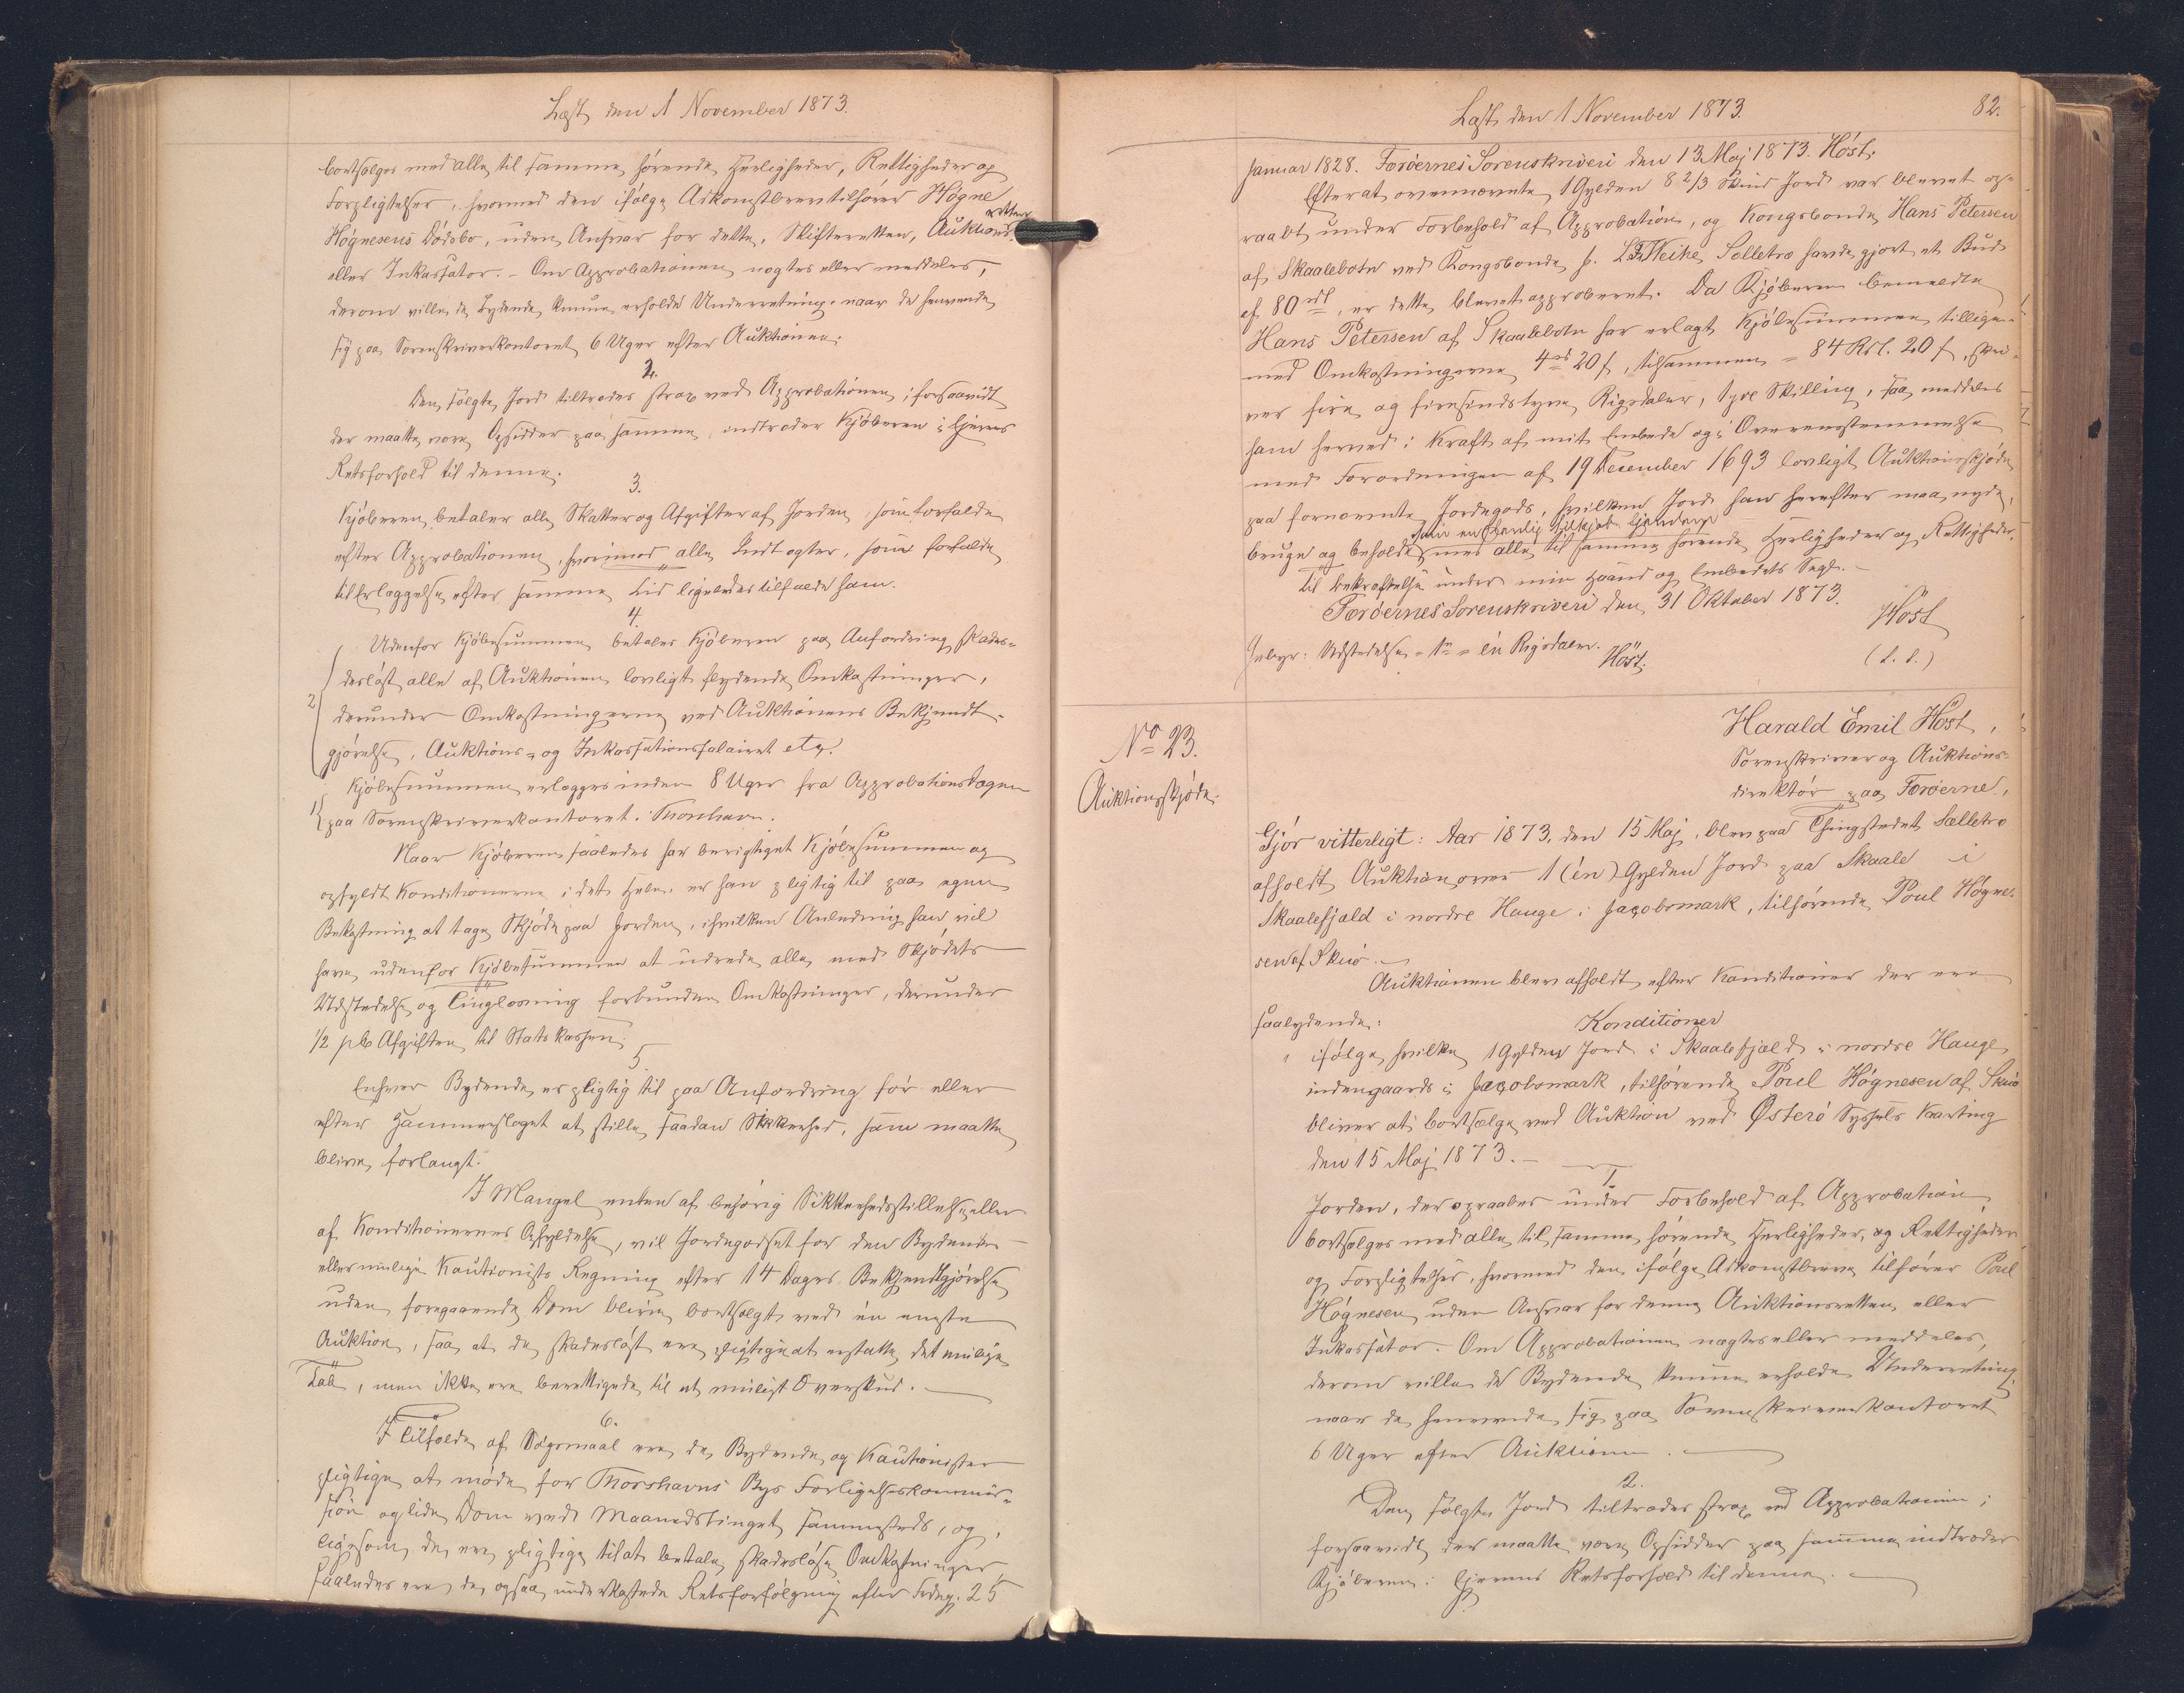 Læst den 1 November 1873.
bortsælges med alle til samme hørende Herligheder, Rettigheder og
Forpligtelser, hvormed den ifølge Adkomstbreve tilhører Högne
Högnesens Dödsbo, uden Ansvar for dette, Skifteretten, Auktions-
retten
eller Inkassator. - Om Approbationen nægtes eller meddeles,
derom ville de Bydende kunne erholde Underretning, naar de henvende
sig paa Sorenskriverkontoret 6 Uger efter Auktionen.
2.
Den solgte Jord tiltrædes strax ved Approbationen; forsaavidt
der maatte være Opsidder paa samme, indtræder Kjøberen i Ejerens
Retsforhold til denne.
3.
Kjøberen betaler alle Skatter og Afgifter af Jorden, som forfalde
efter Approbationen, hvorimod alle Indtægter, som forfalde
til Erlæggelse efter samme Tid ligeledes tilfalde ham.
4.
Udenfor Kjøbesummen betaler Kjøberen paa Anfordring skades-
2 desløst alle af Auktionen lovligt flydende Omkostninger,
derunder Omkostningerne ved Auktionens Bekjendt-
gjørelse, Auktions- og Inkassationssalairet etc.
Kjøbesummen erlægges inden 8 Uger fra Approbationsdagen
1 paa Sorenskriverkontoret i Thorshavn.
Naar Kjøberen saaledes har berigtiget Kjøbesummen og
opfyldt Konditionerne i det Hele, er han pligtig til paa egen
Bekostning at tage Skjøde paa Jorden, i hvilken Anledning han vil
have udenfor Kjøbesummen at udrede alle med Skjødets
Udstedelse og Tinglæsning forbundne Omkostninger, derunder
1/2 pCt Afgiften til Statskassen.
5.
Enhver Bydende er pligtig til paa Anfordring før eller
efter Hammerslaget at stille saadan Sikkerhed, som maatte
blive forlangt.
I Mangel enten af behørig Sikkerhedsstillelse eller
af Konditionernes Opfyldelse, vil Jordegodset for den Bydendes
eller mulige Kautionists Regning efter 14 Dages Bekjendtgjørelse
uden foregaaende Dom blive bortsolgt ved én eneste
Auktion, saa at de skadesløst ere pligtige at erstatte det mulige
Tab, men ikke ere berettigede til et muligt Overskud.
6.
I Tilfælde af Søgsmaal ere de Bydende og Kautionister
pligtige at møde for Thorshavns Bys Forligelseskommis-
sion og lide Dom ved Maanedstinget sammesteds, og,
ligesom de ere pligtige til at betale skadesløse Omkostninger
saaledes ere de ogsaa underkastede Retsforfølgning efter Frdng. 25
Læst den 1 November 1873.
82.
Januar 1828. Færöernes Sorenskriveri den 13 Maj 1873. Höst.
Efterat ovennævnte 1 Gylden 8 2/3 Skind Jord var blevet op-
raabt under Forbehold af Approbation, og Kongsbonde Hans Petersen
af Skaalebotn ved Kongsbonde J. Weihe, Selletræ havde gjort et Bud
af 80 rdl, er dette blevet approberet. Da Kjøberen bemeldte
Hans Petersen af Skaalebotn har erlagt Kjøbesummen tillige-
med Omkostningerne 4rd 20 s, tilsammen = 84 Rdl. 20 s, skri-
ver fire og firesindstyve Rigsdaler, tyve Skilling, saa meddeles
ham herved i Kraft af mit Embede og i Overensstemmelse
med Forordningen af 19 December 1693 lovligt Auktionsskjøde
paa fornævnte Jordegods, hvilken Jord han herefter maa nyde,
som en lovlig tilkjøbt Ejendom
bruge og beholde med alle til samme hørende Herligheder og Rettigheder.
Til Bekræftelse under min Haand og Embedets Segl.
Færöernes Sorenskriveri den 31 Oktober 1873.
Höst
(L. S.)
Gebyr: Udstedelse = 1rd = én Rigsdaler.
Höst.
No 23.
Auktionsskjøde.
Harald Emil Höst,
Sorenskriver og Auktions-
direktør paa Færöerne,
Gjör vitterligt: Aar 1873, den 15 Maj, blev paa Thingstedet Selletræ
afholdt Auktion over 1 (én) Gylden Jord paa Skaale i
Skaalefjæld i nordre Hauge i Jacobsmark, tilhørende Poul Högne-
sen af Skuö.
Auktionen blev afholdt efter Konditioner der ere
saalydende:
Konditioner
ifølge hvilke 1 Gylden Jord i Skaalefjæld i nordre Hauge
indengaards i Jacobsmark, tilhørende Poul Högnesen af Skuö
bliver at bortsælge ved Auktion ved Österö Syssels Varting
den 15 Maj 1873.
1.
Jorden, der opraabes under Forbehold af Approbation,
bortsælges med alle til samme hørende Herligheder, og Rettigheder
og Forpligtelser, hvormed den ifølge Adkomstbreve tilhører Poul
Högnesen, uden Ansvar for denne Auktionsretten eller
Inkassator. Om Approbationen nægtes eller meddeles,
derom ville de Bydende kunne erholde Underretning,
naar de henvende sig paa Sorenskriverkontoret
6 Uger efter Auktionen.
2.
Den solgte Jord tiltrædes strax ved Approbationen;
forsaavidt der maatte være Opsidder paa samme, indtræder
Kjøberen i Ejerens Retsforhold til denne.